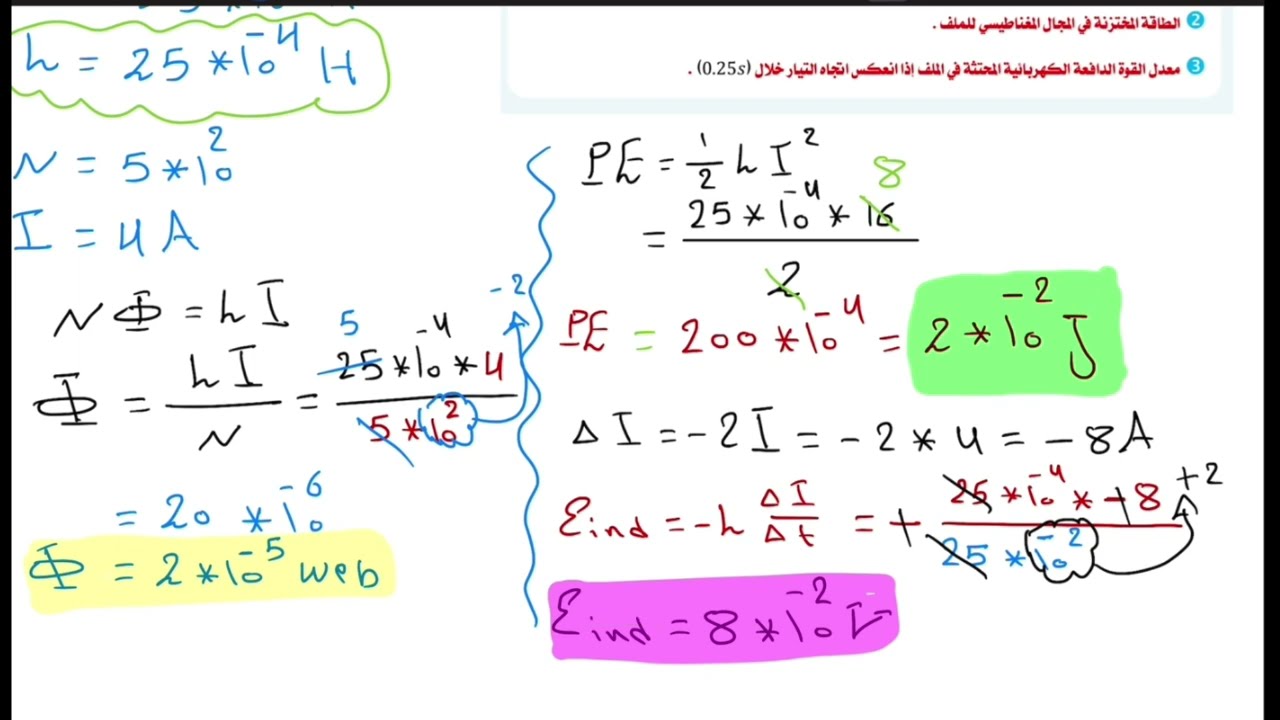 ② الطاقة المختزنة في المجال المغناطيسي للملف .
③ معدل القوة الدافعة الكهربائية المحتثة في الملف إذا انعكس اتجاه التيار خلال (0.25s) .
L = 25 * 10^-4 H
N = 5 * 10^2
I = 4 A
N Φ = L I
Φ = L I / N = 25 * 10^-4 * 4 / 5 * 10^2
5
-2
= 20 * 10^-6
Φ = 2 * 10^-5 web
PE = 1/2 L I^2
= 25 * 10^-4 * 16 / 2
8
PE = 200 * 10^-4 = 2 * 10^-2 J
Δ I = -2 I = -2 * 4 = -8 A
Ɛind = -L Δ I / Δ t = + 25 * 10^-4 * + 8 / 25 * 10^-2
+2
Ɛind = 8 * 10^-2 V